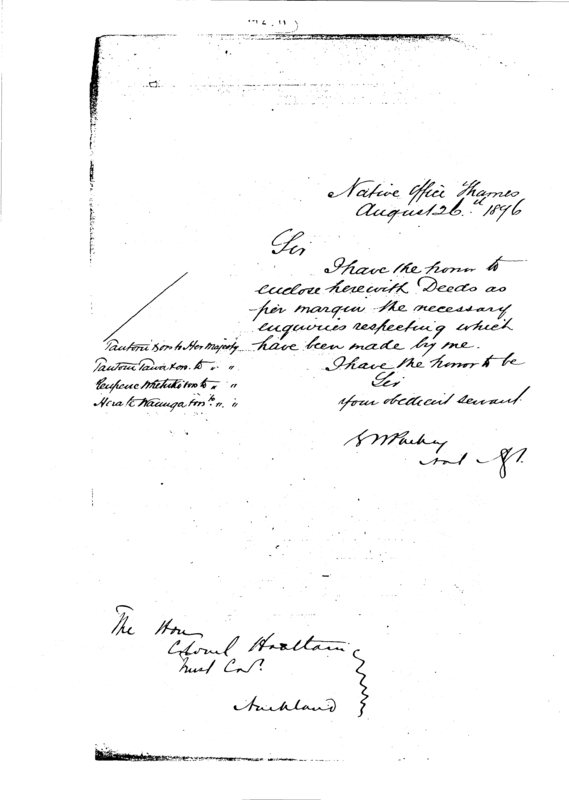 Native Office Thames
August 26th 1876
Sir
I have the honor to
enclose herewith Deeds as
per margin the necessary
enquiries respecting which
have been made by me.
Tautoru & ors to Her Majesty
Tautoru Tawa & ors. to " "
& ors to " "
& ors to " "
I have the honor to be
Sir
your obedient servant
The Hon
Colonel Haultain
Trust Comr.
Auckland